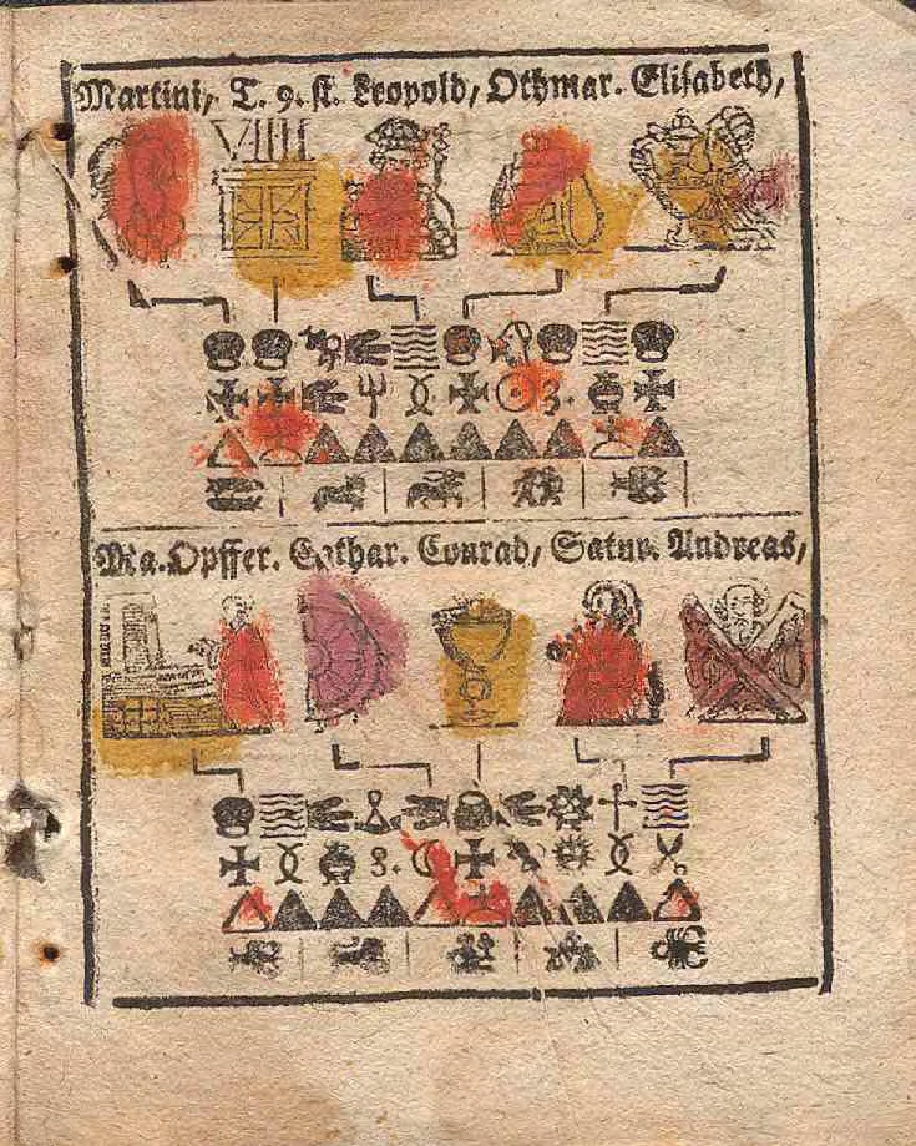 Martini, T. 9. st. Leopold, Othmar. Elisabeth,
VIIII
3.
Ma. Opffer. Cathar. Conrad, Satur. Andreas,
8.